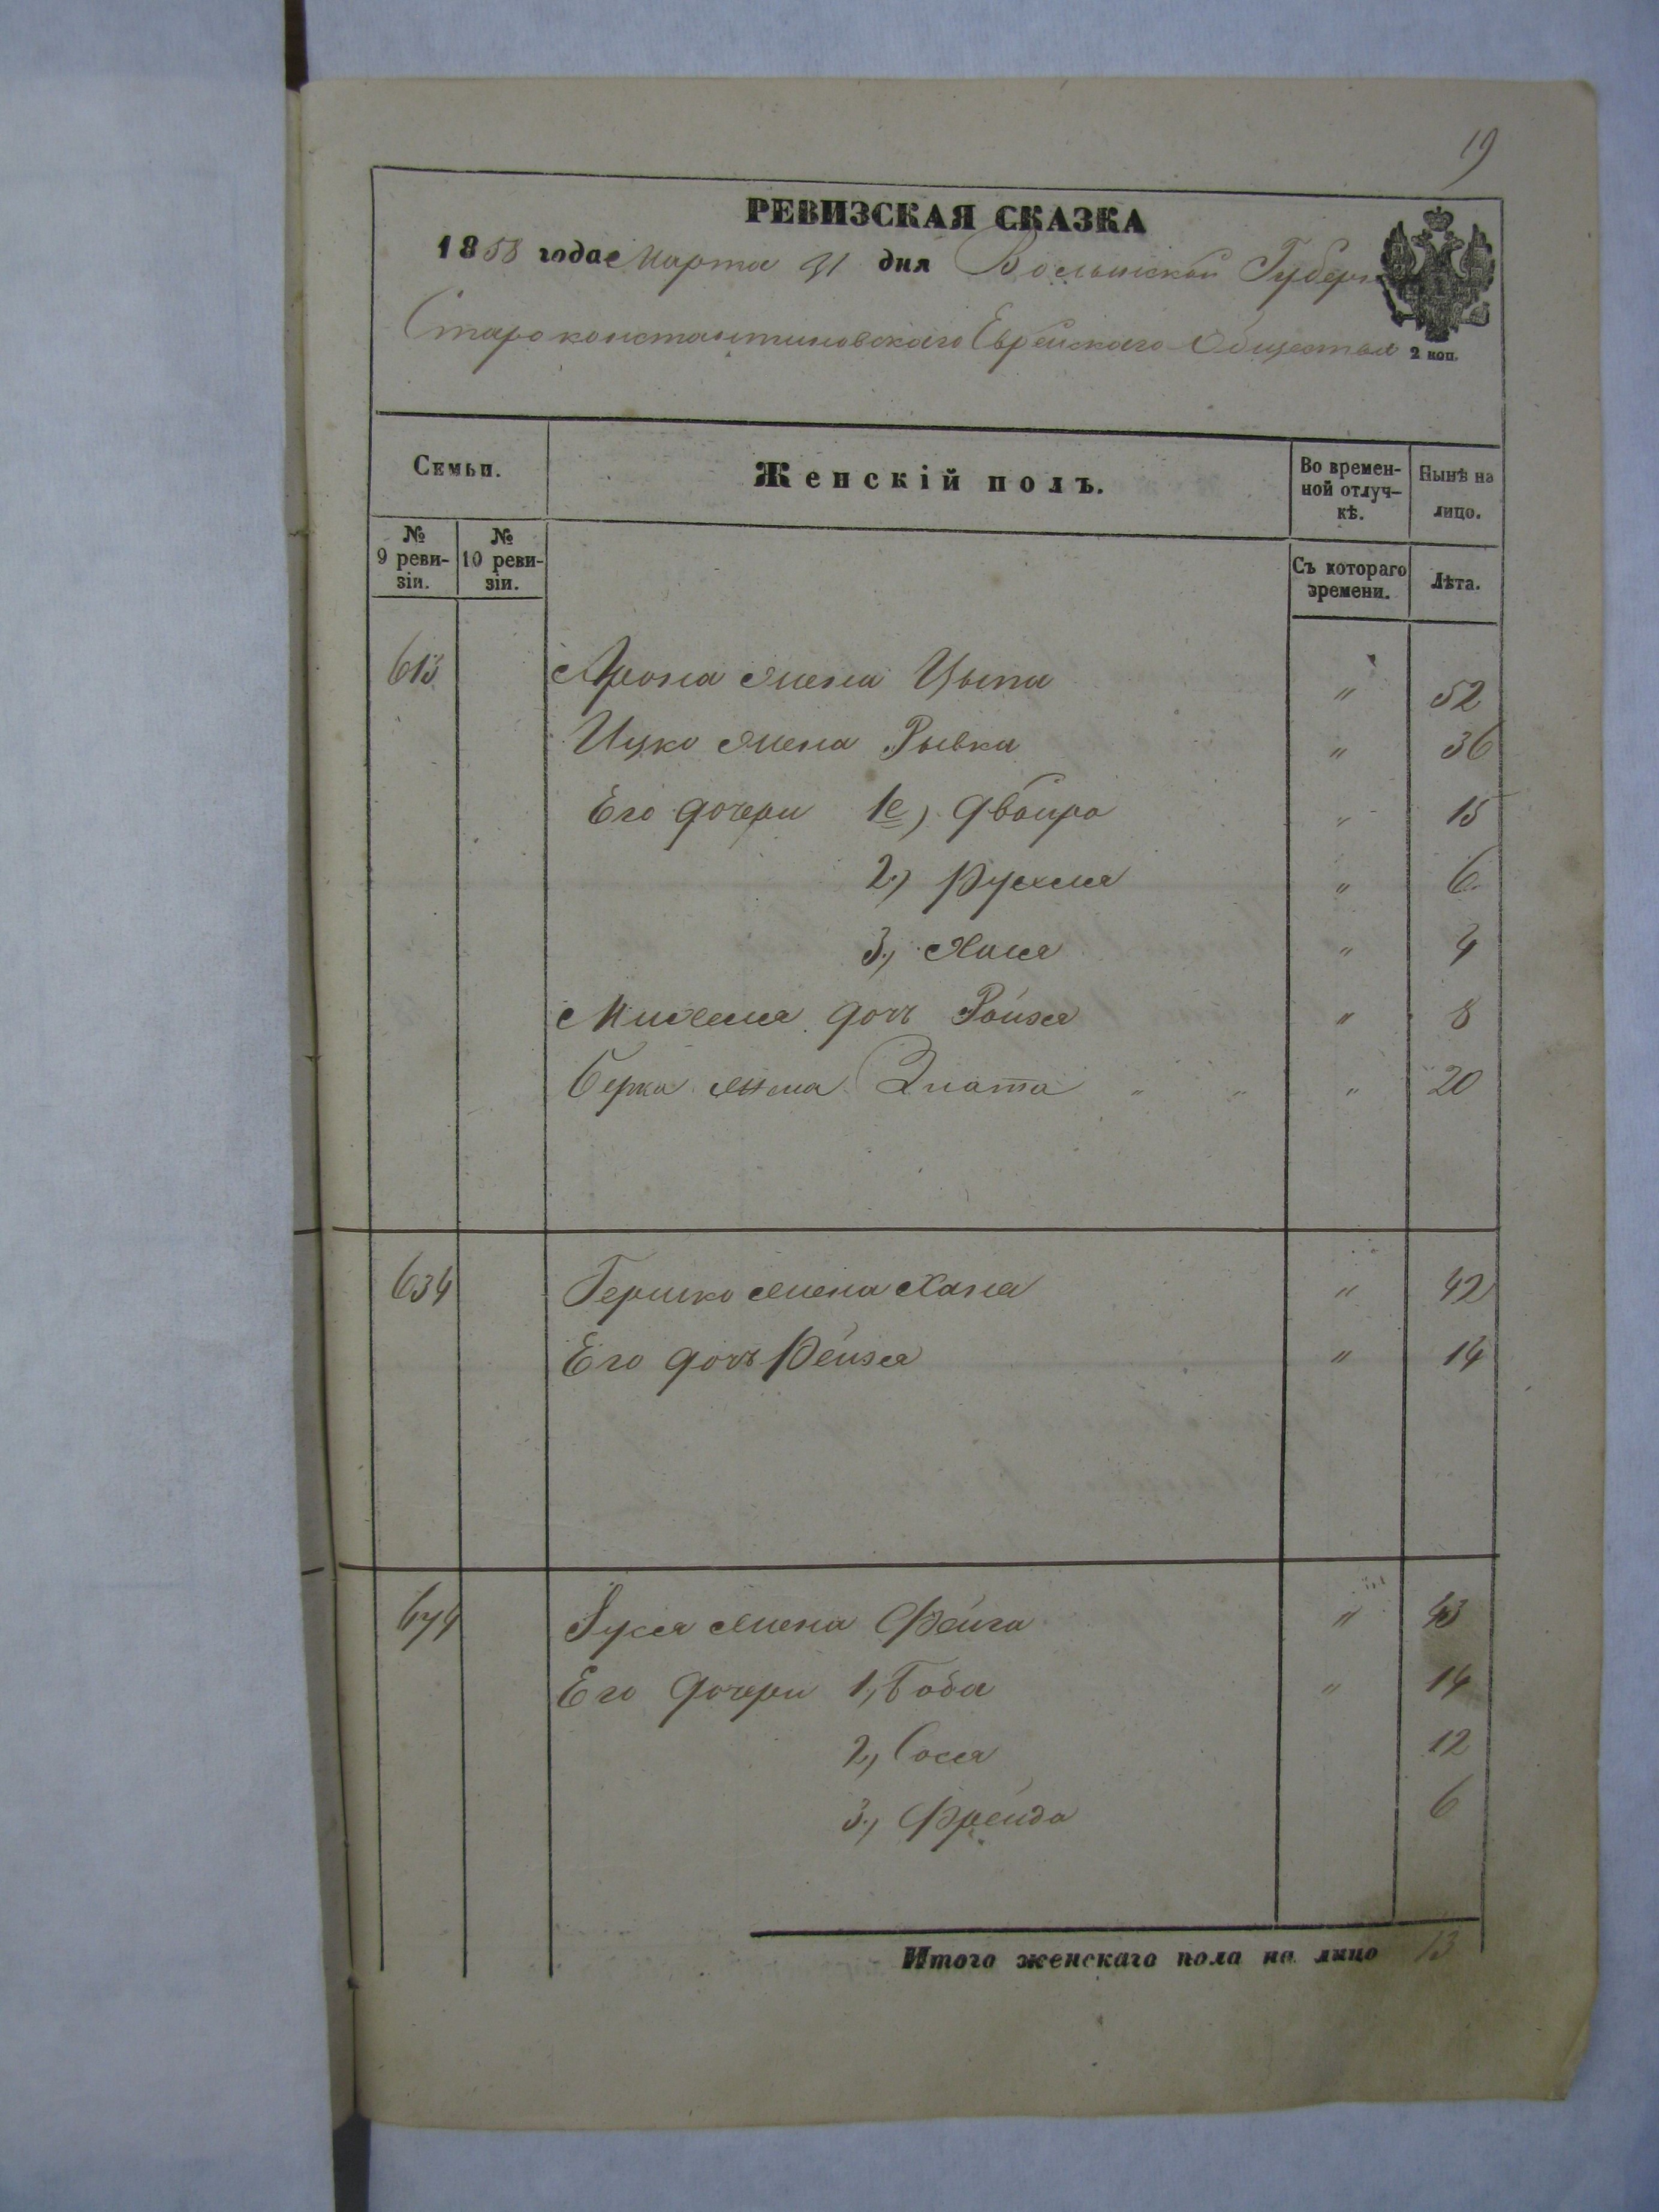 19
РЕВИЗСКАЯ СКАЗКА
1858 года Марта 31 дня Волынской Губерн
Староконстантиновскаго Еврейскаго Общества
2 коп.
Семьи.
Женскій полъ.
Во времен-
ной отлуч-
кѣ.
Нынѣ на
лицо.
№
9 реви-
зіи.
№
10 реви-
зіи.
Съ котораго
времени.
Лѣта.
613 Арона жена Цыпа " 52
Ицко жена Рывка " 36
Его дочери 1е) Двойра " 15
2) Рухля " 6
3, Хая " 4
дочь Ройзя " 8
Берка жена Злата " " " 20
634 Гершко жена Хая " 42
Его дочь Рейзя " 14
674 жена Фейга " 43
Его дочери 1, Боба " 14
2, Сося 12
3, Фрейда 6
Итого женскаго пола на лицо 13